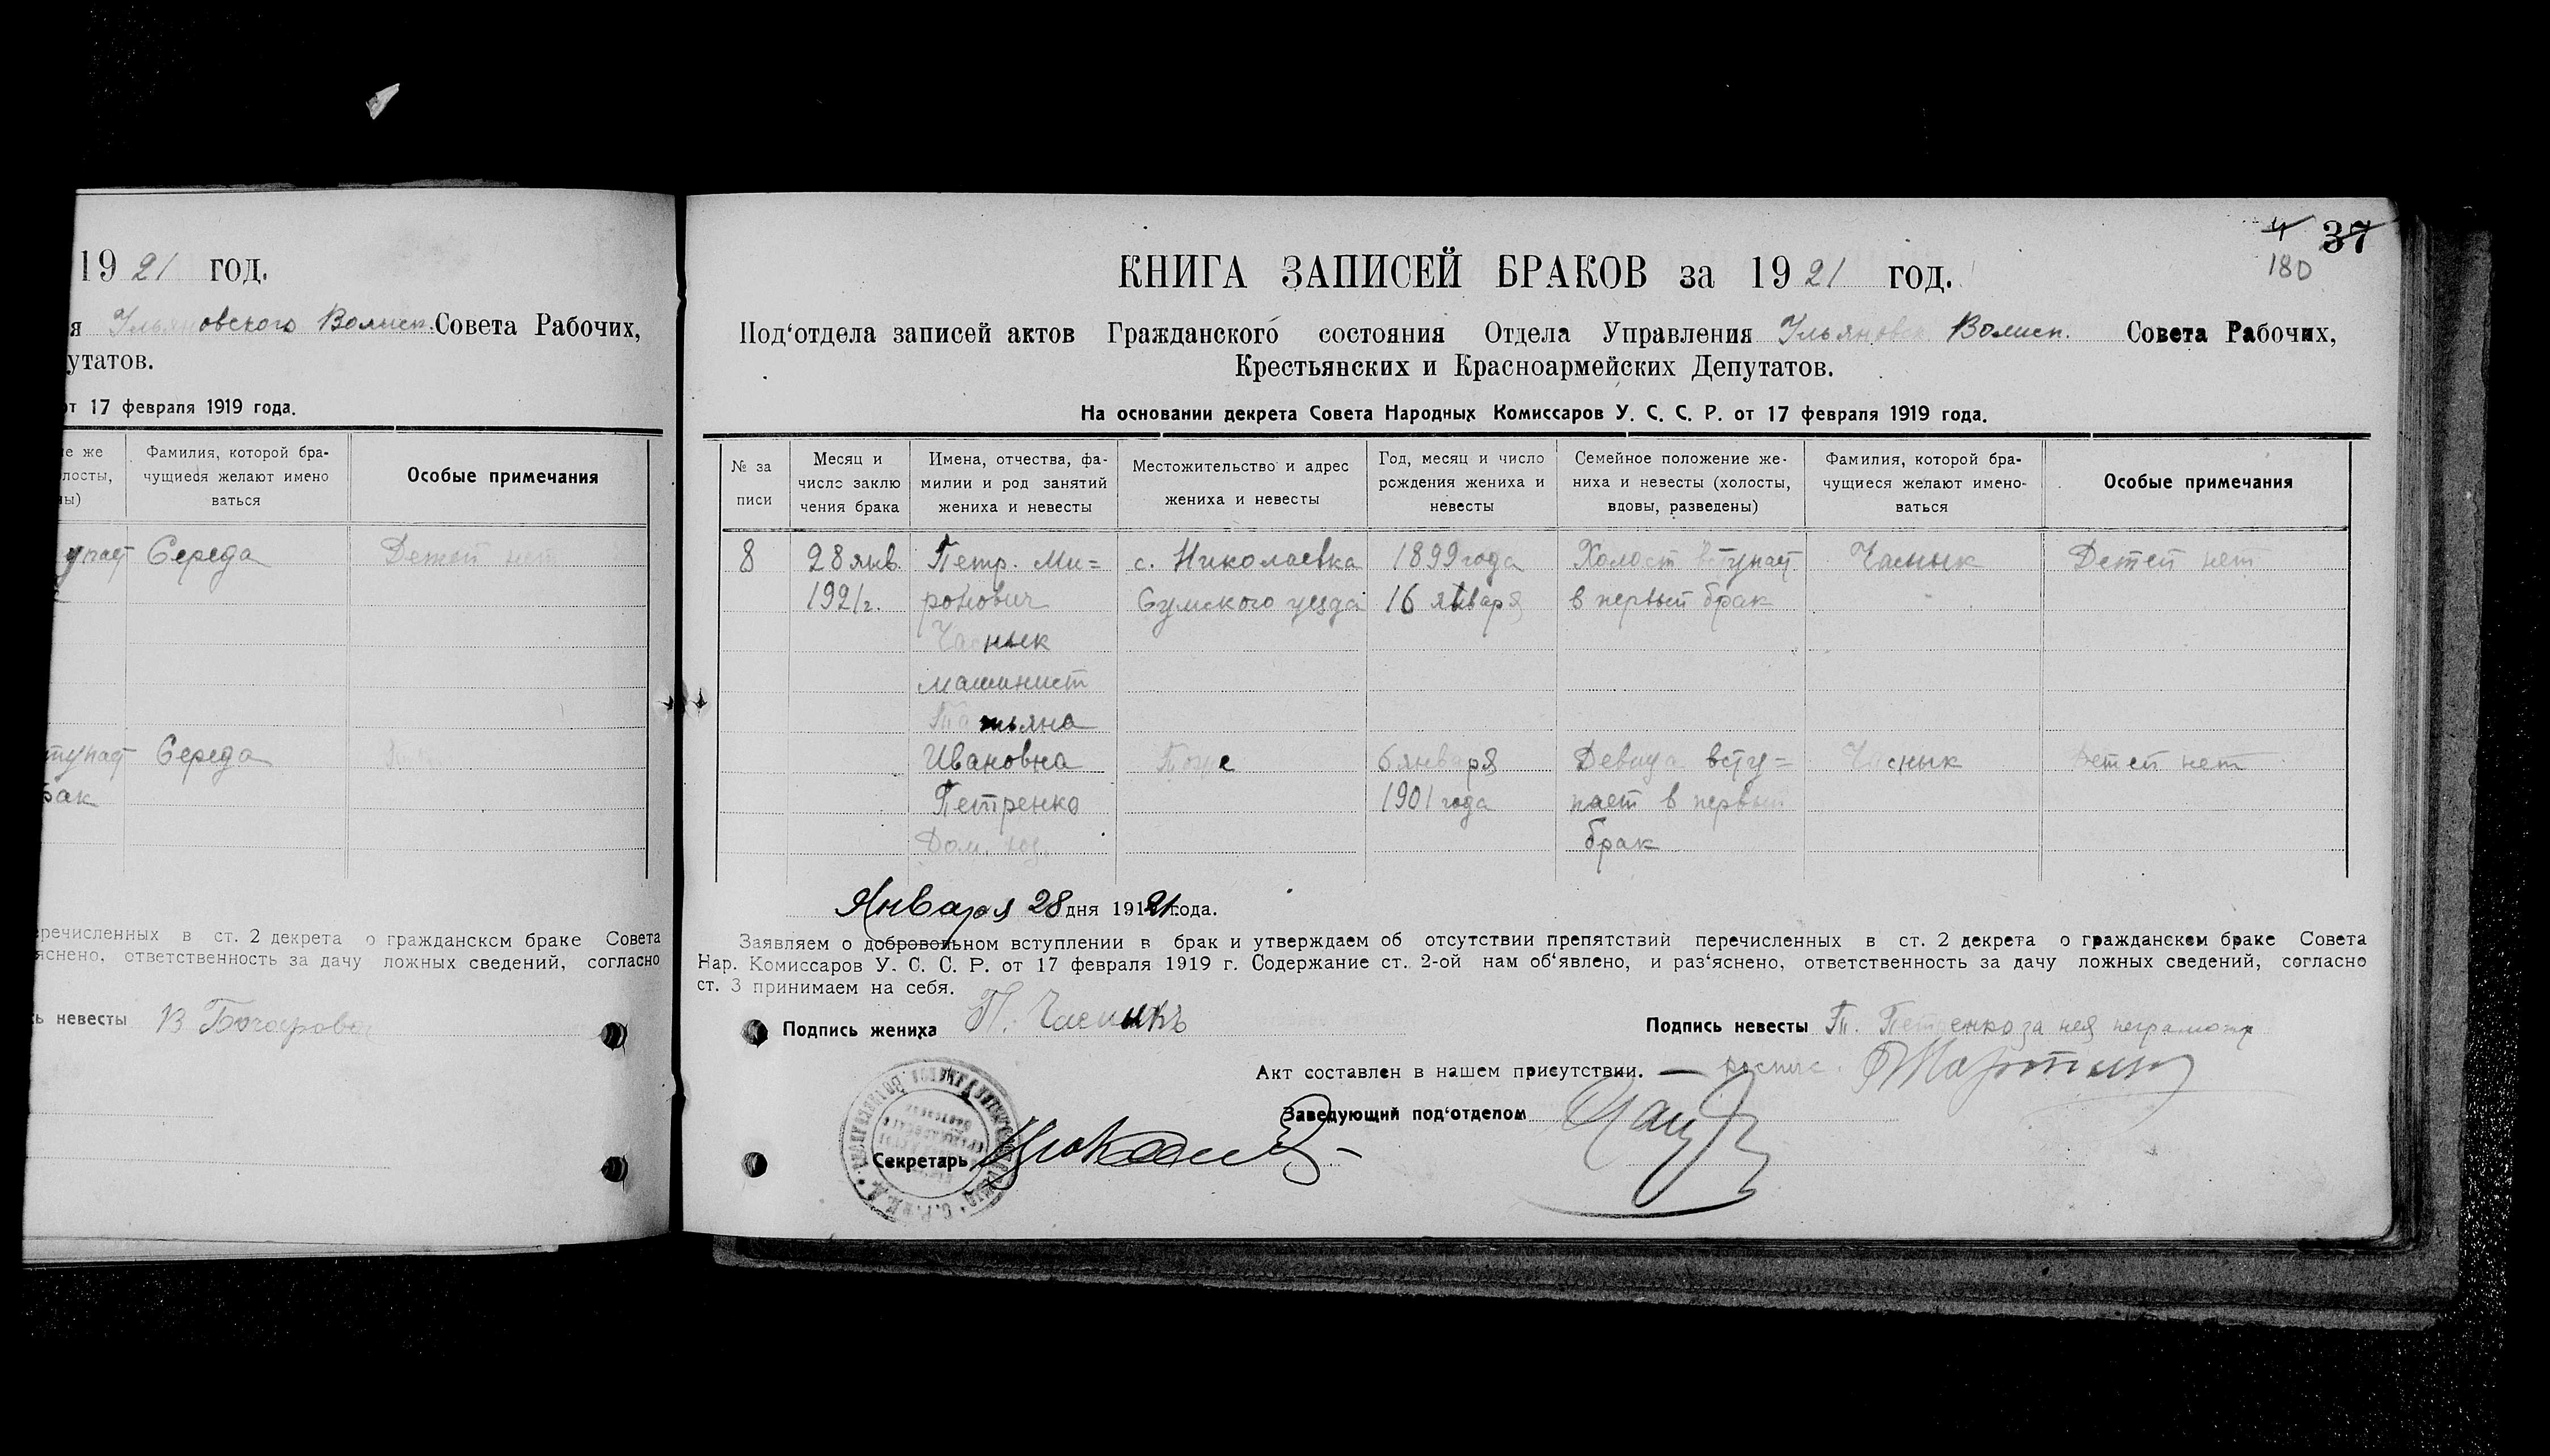 1921 год.
я Ульяновского Волисп. Совета Рабочих,
утатов.
от 17 февраля 1919 года.
же
лосты,
ны)
Фамилия, которой бра-
чущиеся желают имено
ваться
Особые примечания
Середа Детей нет
Середа
брак
еречисленных в ст. 2 декрета о гражданском браке Совета
яснено, ответственность за дачу ложных сведений, согласно
ь невесты
4 37
180
КНИГА ЗАПИСЕЙ БРАКОВ за 1921 год.
Под‘отдела записей актов Гражданского состояния Отдела Управления Ульяновск. Волисп. Совета Рабочих,
Крестьянских и Красноармейских Депутатов.
На основании декрета Совета Народных Комиссаров У. С. С. Р. от 17 февраля 1919 года.
№ за
писи
Месяц и
число заклю
чения брака
Имена, отчества, фа-
милии и род занятий
жениха и невесты
Местожительство и адрес
жениха и невесты
Год, месяц и число
рождения жениха и
невесты
Семейное положение же-
ниха и невесты (холосты,
вдовы, разведены)
Фамилия, которой бра-
чущиеся желают имено-
ваться
Особые примечания
8 28 янв. Петр. Ми= с. Николаевка 1899 года Холост вступает Часнык Детей нет
1921 г. ронович Сумского уезда 16 января в первый брак
Часнык
машинист
Татьяна
Ивановна 6 января Девица всту= Часнык Детей нет
Петренко 1901 года пает в первый
Дом. хоз. брак
Января 28 дня 1921 года.
Заявляем о добровольном вступлении в брак и утверждаем об отсутствии препятствий перечисленных в ст. 2 декрета о гражданском браке Совета
Нар. Комиссаров У. С. С. Р. от 17 февраля 1919 г. Содержание ст. 2-ой нам об‘явлено, и раз‘яснено, ответственность за дачу ложных сведений, согласно
ст. 3 принимаем на себя.
Подпись жениха П. Часныкъ
Подпись невесты Т. Петренко за нея неграмотн
Акт составлен в нашем присутствии.
Заведующий под‘отделом
Секретарь